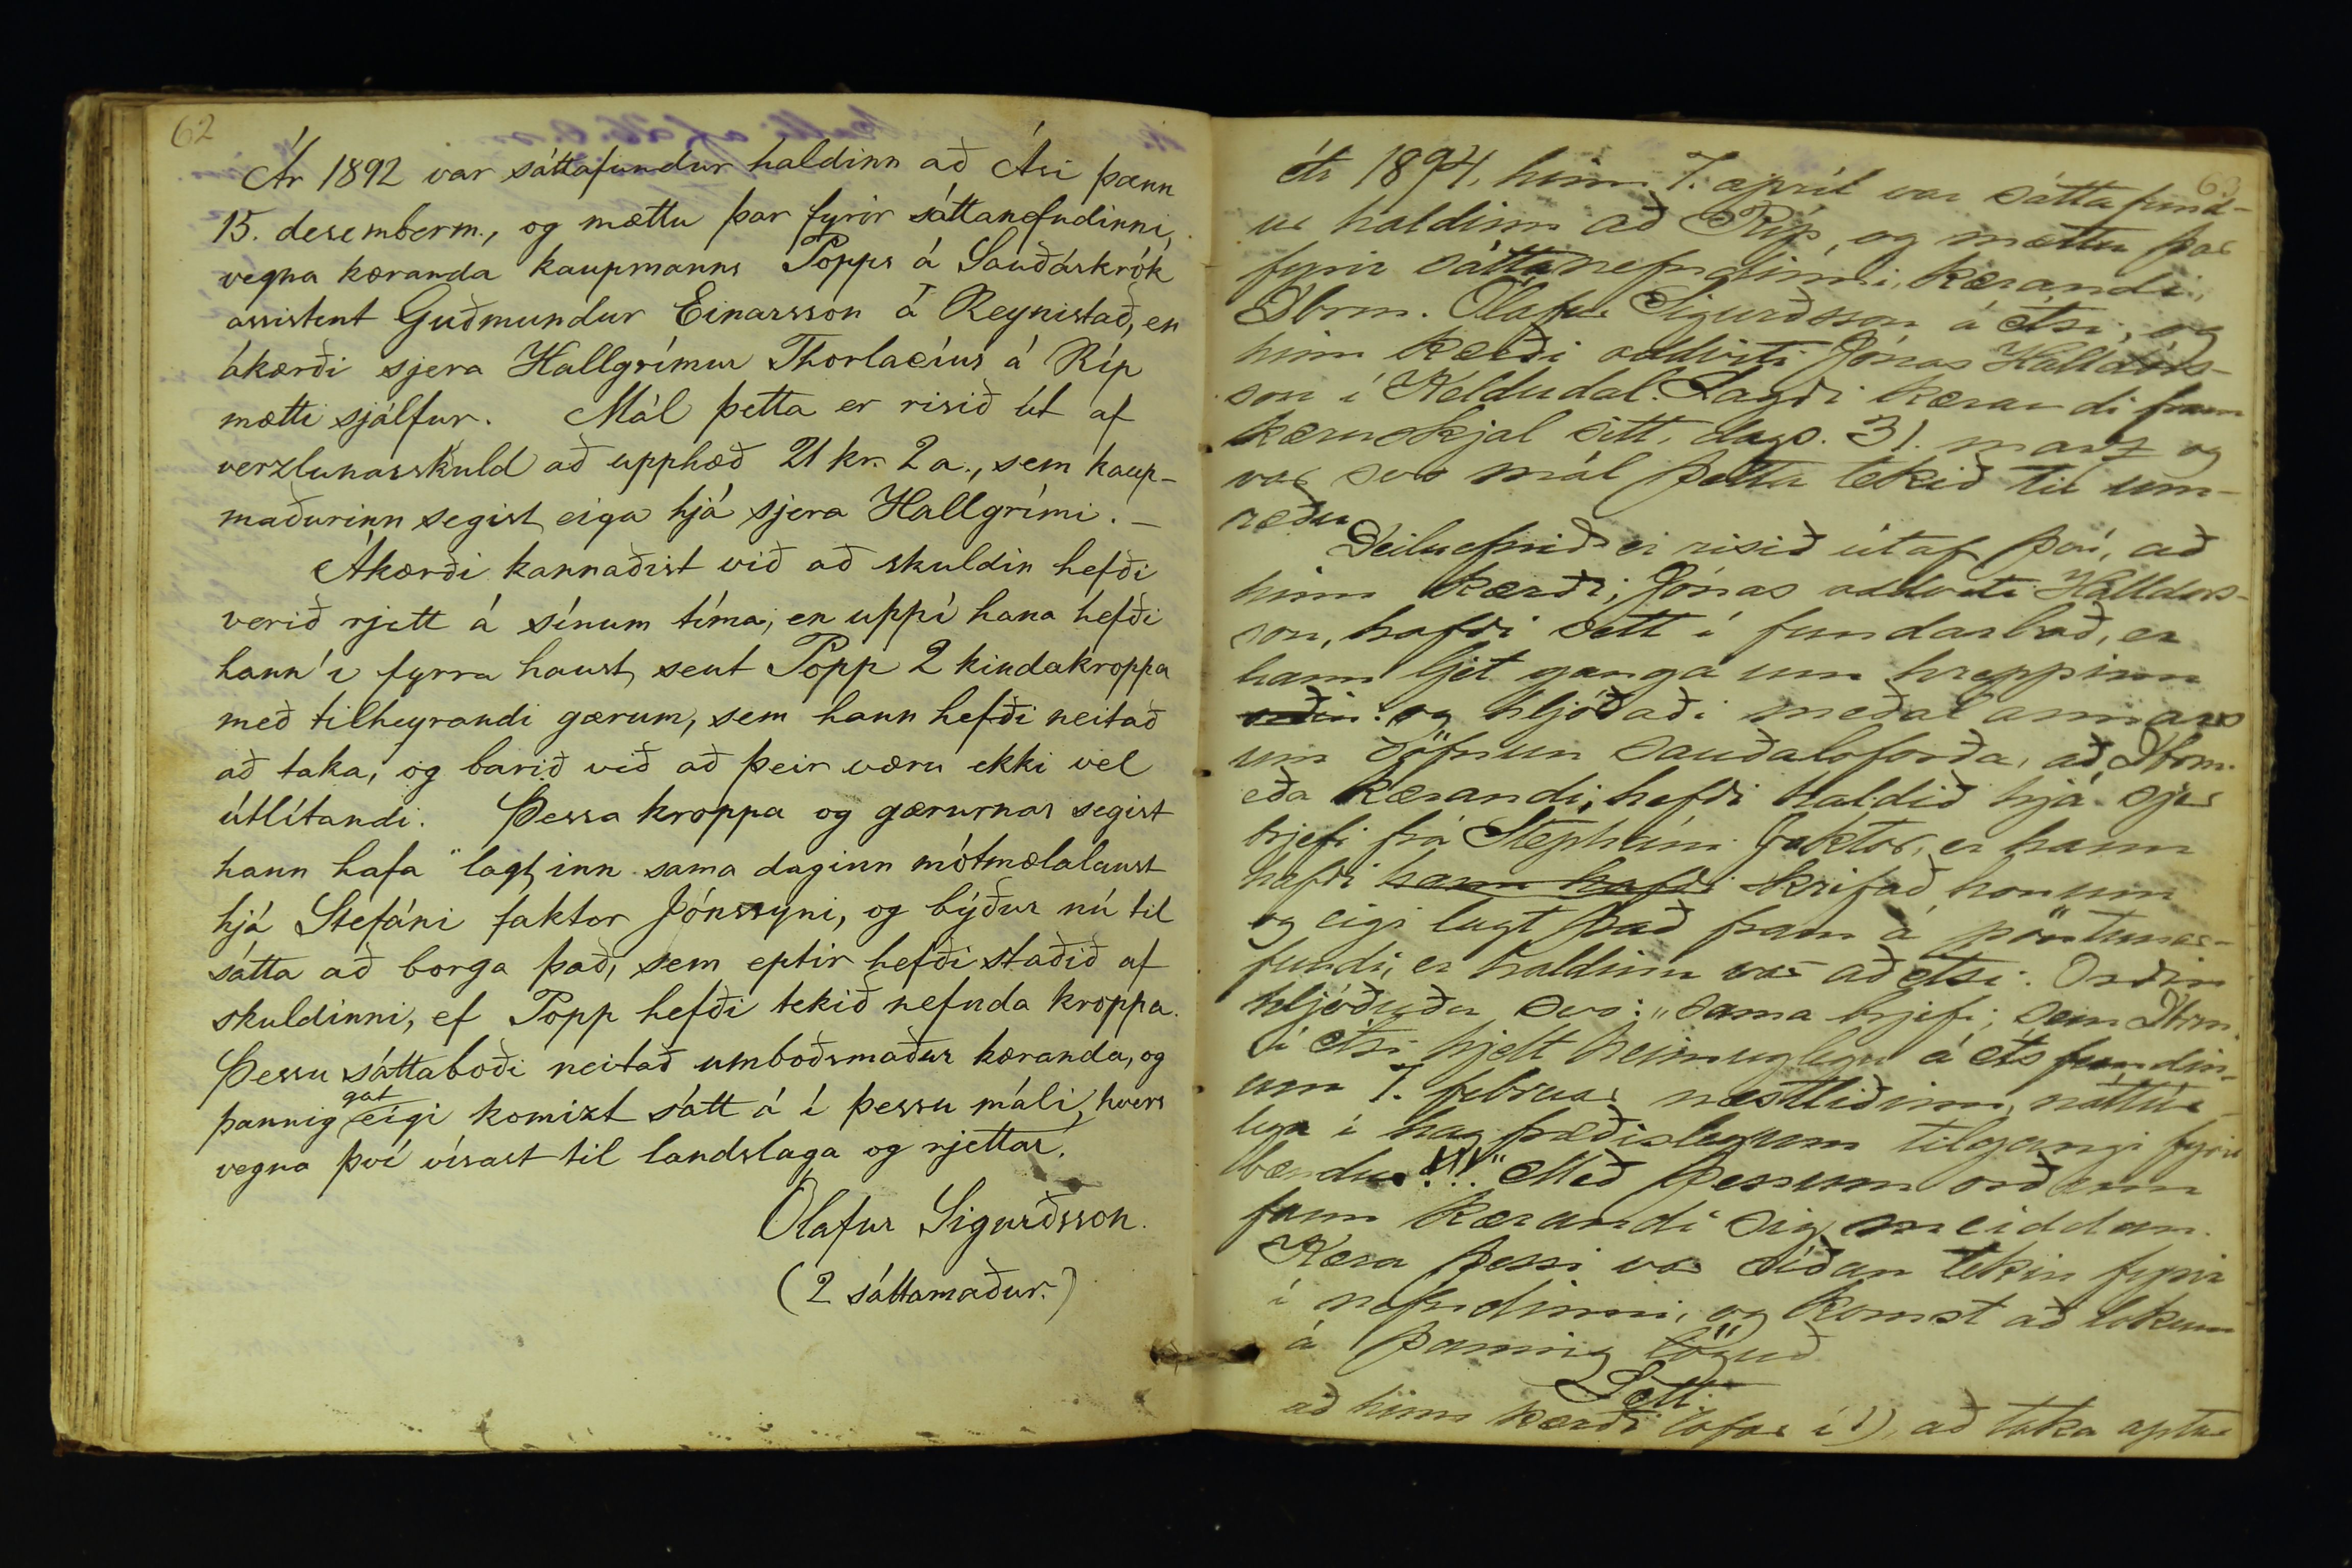 62
Ár 1892 var sáttafundur haldinn að Ási þann
15. desemberm., og mættu þar fyrir sáttanefndinni,
vegna kæranda kaupmanns Popps á Sauðárkrók
assistent Guðmundur Einarsson á Reynistað, en
ákærði sjera Hallgrímur Thorlacíus á Ríp
mætti sjálfur. Mál þetta er risið út af
verzlunarskuld að upphæð 21 kr. 2 a., sem kaup-
maðurinn segist eiga hjá sjera Hallgrími. -
Ákærði kannaðist við að skuldin hefði
verið rjett á sínum tíma, en uppí hana hefði
hann í fyrra haust sent Popp 2 kindakroppa
með tilheyrandi gærum, sem hann hefði neitað
að taka, og barið við að þeir væru ekki vel
útlítandi. Þessa kroppa og gærurnar segist
hann hafa lagt inn sama daginn mótmælalaust
hjá Stefáni faktor Jónssyni, og býður nú til
sátta að borga það, sem eptir hefði staðið af
skuldinni, ef Popp hefði tekið nefnda kroppa.
Þessu sáttaboði neitað umboðsmaður kæranda, og
þannig gat eigi komizt sátt á í þessu máli, hvers
vegna því vísast til landslaga og rjettar.
Ólafur Sigurðsson.
(2 sáttamaður.)
63
Ár 1894, hinn 7. apríl var sáttafund-
ur haldinn að Ríp, og mættu þar
fyrir sáttanefndinni, kærandi,
Dbrm. Ólafur Sigurðsson á Ási, og
hinn kærði oddviti Jónas Halldórs-
son í Keldudal. Lagði kærandi fram
kæruskjal sitt, dags. 31. marz og
var svo mál þetta tekið til um-
ræðu
Deiluefnið er risið útaf því, að
hinn kærði, Jónas oddviti Halldórs-
son, hafði sett í fundarboð, er
hann ljet ganga um hreppinn
og hljóðaði meðal annars
um söfnun sauðaloforða, að Dbrm.
eða kærandi, hefði haldið hjá sjer
brjefi frá Stepháni faktor, er hann
hefði hann hafði skrifað honum
og eigi lagt það fram á pöntunar-
fundi, er haldinn var að Ási. Orðin
hljóðuðu svo: "Sama brjefi, sem Dbrm.
í Ási hjelt heimuglegu á Ásfundin-
um 7. februar næstliðinn, náttúr-
lega í hagfræðislegum tilgangi fyrir
bændur!!!." Með þessum orðum
fann kærandi sig meiddan.
Kæra þessi var síðan tekin fyrir
í nefndinni, og komst að lokum
á þannig löguð
Sætt
að hinn kærði lofar í 1), að taka aptur